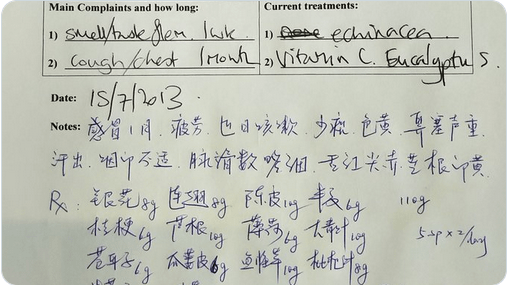 Main Complaints and how long:
Current treatments:
1) smell/taste 1wk
1) echinacea
2) cough/chest 1month
2) Vitamin C. Eucalyptus
Date: 15/7/2013.
Notes: 感冒1月. 疲劳. 咳嗽. 少痰. 色黄. 鼻塞声重.
汗出. 咽 不适. 脉滑数 略细. 舌红尖赤 苔根 黄.
Rx: 银花8g 连翘8g 陈皮10g 6g 110g
桔梗6g 芦根10g 薄荷6g 10g 5sp x 2/day
苍耳子6g 瓜蒌皮6g 鱼腥草10g 枇杷叶8g